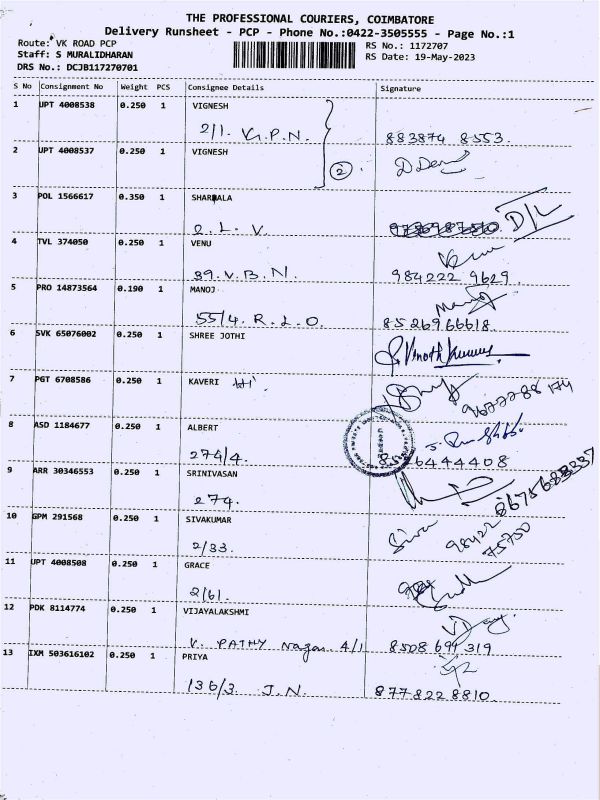 THE PROFESSIONAL COURIERS, COIMBATORE
Delivery Runsheet - PCP - Phone No.:0422-3505555 - Page No.:1
Route: VK ROAD PCP
RS No.: 1172707
Staff: S MURALIDHARAN
RS Date: 19-May-2023
DRS No.: DCJB117270701
S No Consignment No Weight PCS Consignee Details Signature
1 UPT 4008538 0.250 1 VIGNESH
2/1. V.G.P.N. 883874 8553.
2 UPT 4008537 0.250 1 VIGNESH
2
3 POL 1566617 0.350 1 SHARMALA
D/L
2. L. V.
4 TVL 374050 0.250 1 VENU
39. V. B. N. 984222 9629.
5 PRO 14873564 0.190 1 MANOJ
Manoj
55/4. R. L. O. 8526966618.
6 SVK 65076002 0.250 1 SHREE JOTHI
7 PGT 6708586 0.250 1 KAVERI
9677788174
8 ASD 1184677 0.250 1 ALBERT
274/4. 8526444408
9 ARR 30346553 0.250 1 SRINIVASAN
274.
10 GPM 291568 0.250 1 SIVAKUMAR
Siva
2/33. 98422 75750
11 UPT 4008508 0.250 1 GRACE
2/61.
12 PDK 8114774 0.250 1 VIJAYALAKSHMI
V. PATHY Nagar 4/1 8508 691 319
13 IXM 503616102 0.250 1 PRIYA
136/3 J.N. 8778228810.